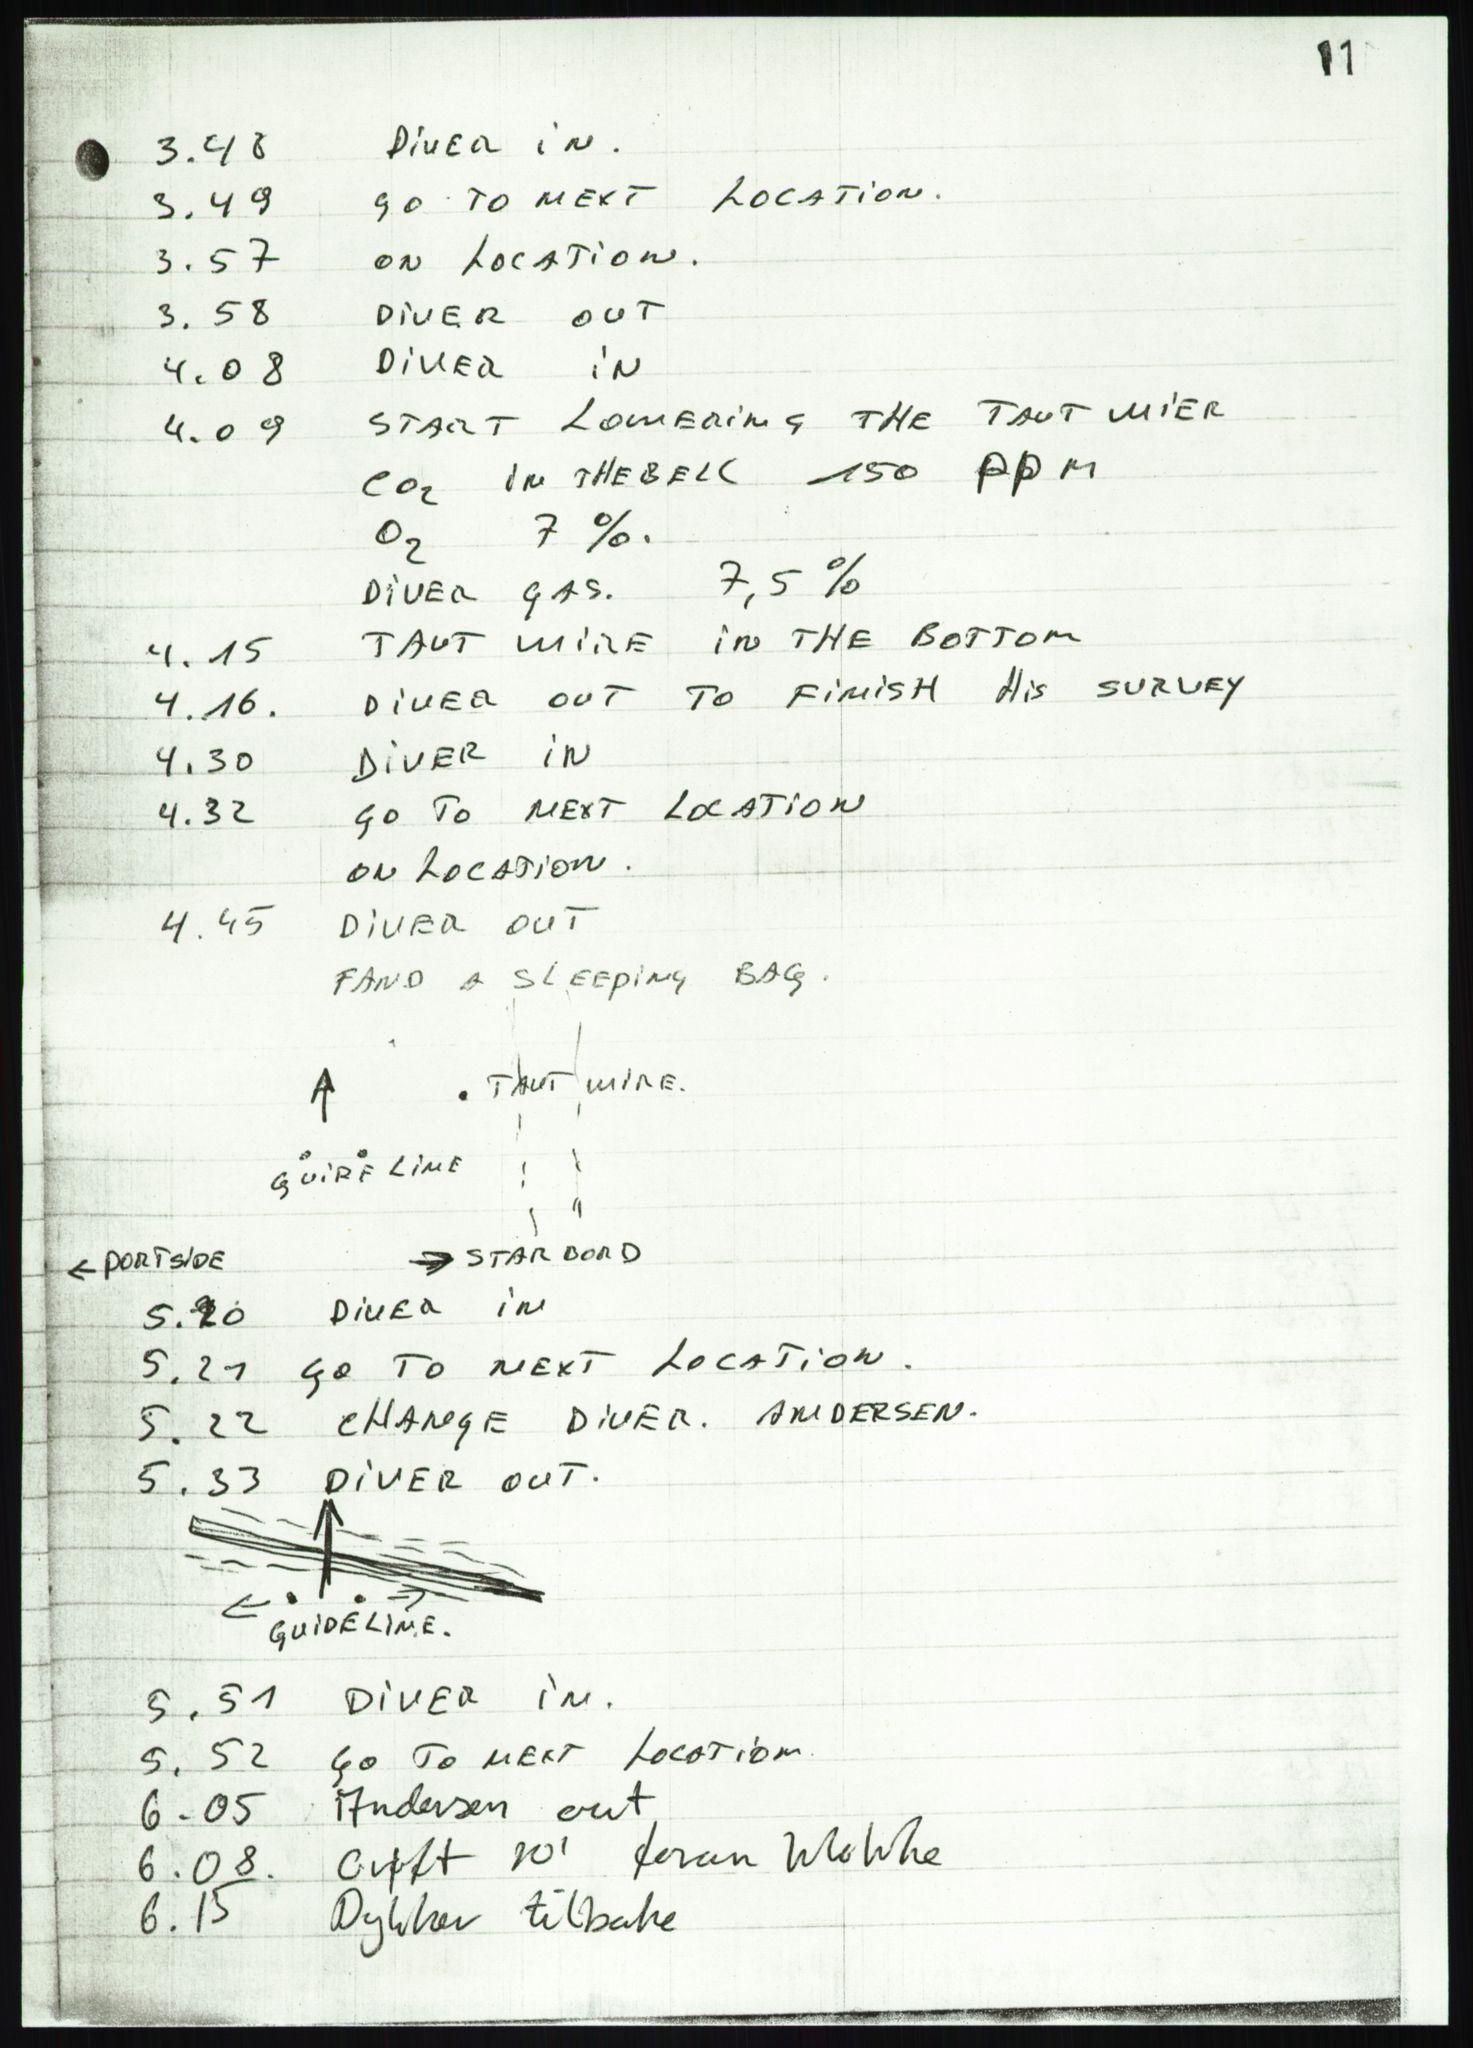 11
3.48 DIVER IN.
3.49 GO TO NEXT LOCATION.
3.57 ON LOCATION.
3.58 DIVER OUT
4.08 DIVER IN
4.09 START LOWERING THE TAUT WIER
CO2 IN THE BELL 150 PPM
O2 7 %.
DIVER GAS. 7,5 %
4.15 TAUT WIRE IN THE BOTTOM
4.16. DIVER OUT TO FINISH HIS SURVEY
4.30 DIVER IN
4.32 GO TO NEXT LOCATION
ON LOCATION.
4.45 DIVER OUT
FAND A SLEEPING BAG.
TAUT WIRE.
GUIDELINE
← PORTSIDE → STARBORD
5.20 DIVER IN
5.21 GO TO NEXT LOCATION.
5.22 CHANGE DIVER. ANDERSEN.
5.33 DIVER OUT.
GUIDELINE.
5.51 DIVER IN.
5.52 GO TO NEXT LOCATION
6.05 Andersen out
6.08. 10' foran klokke
6.15 Dykker tilbake